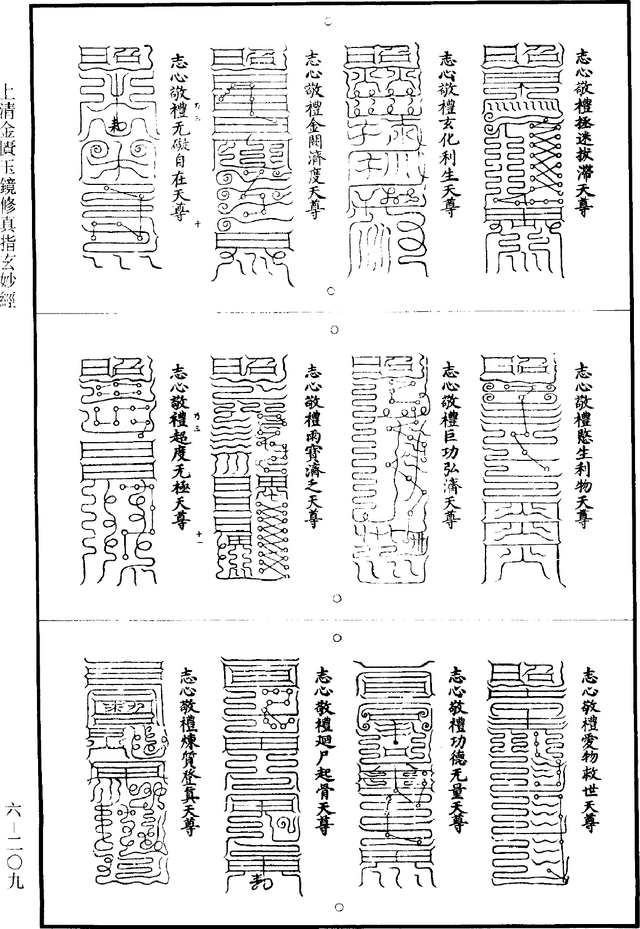 志心敬禮拯迷拔滯天尊
志心敬禮玄化利生天尊
志心敬禮金闕濟度天尊
乃三
十
志心敬禮无礙自在天尊
志心敬禮愍生利物天尊
志心敬禮巨功弘濟天尊
志心敬禮雨寶濟乏天尊
乃三
十一
志心敬禮超度无極天尊
志心敬禮愛物救世天尊
志心敬禮功德无量天尊
志心敬禮廻尸起骨天尊
志心敬禮煉質登真天尊
上清金匱玉鏡修真指玄妙經
六—二〇九